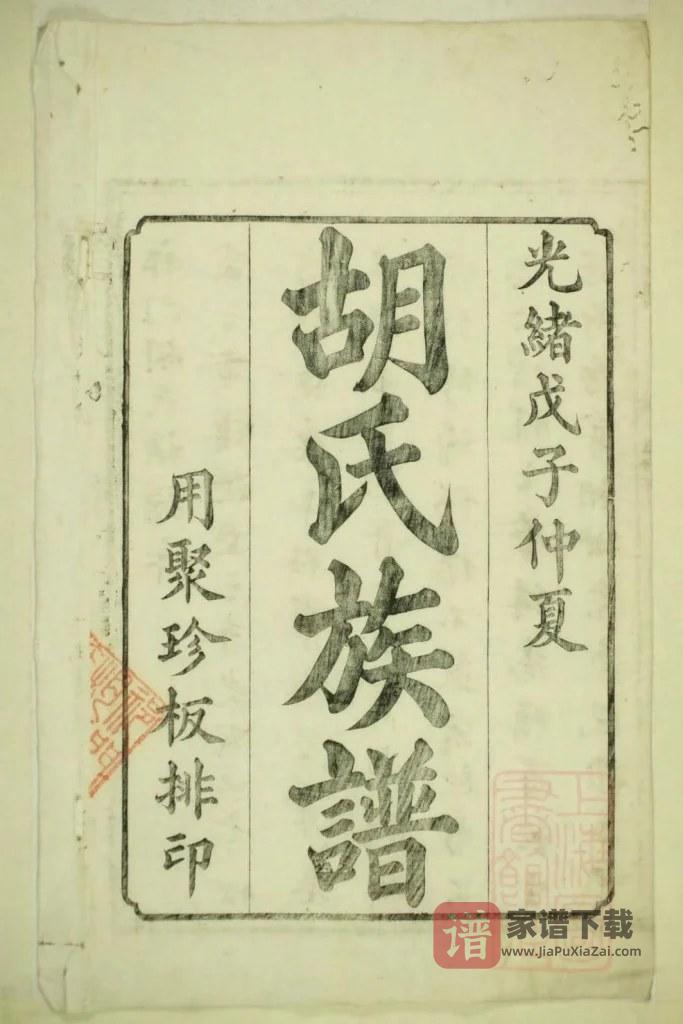 光緒戊子仲夏
胡氏族譜
用聚珍板排印
谱
家谱下载
www.JiaPuXiaZai.com